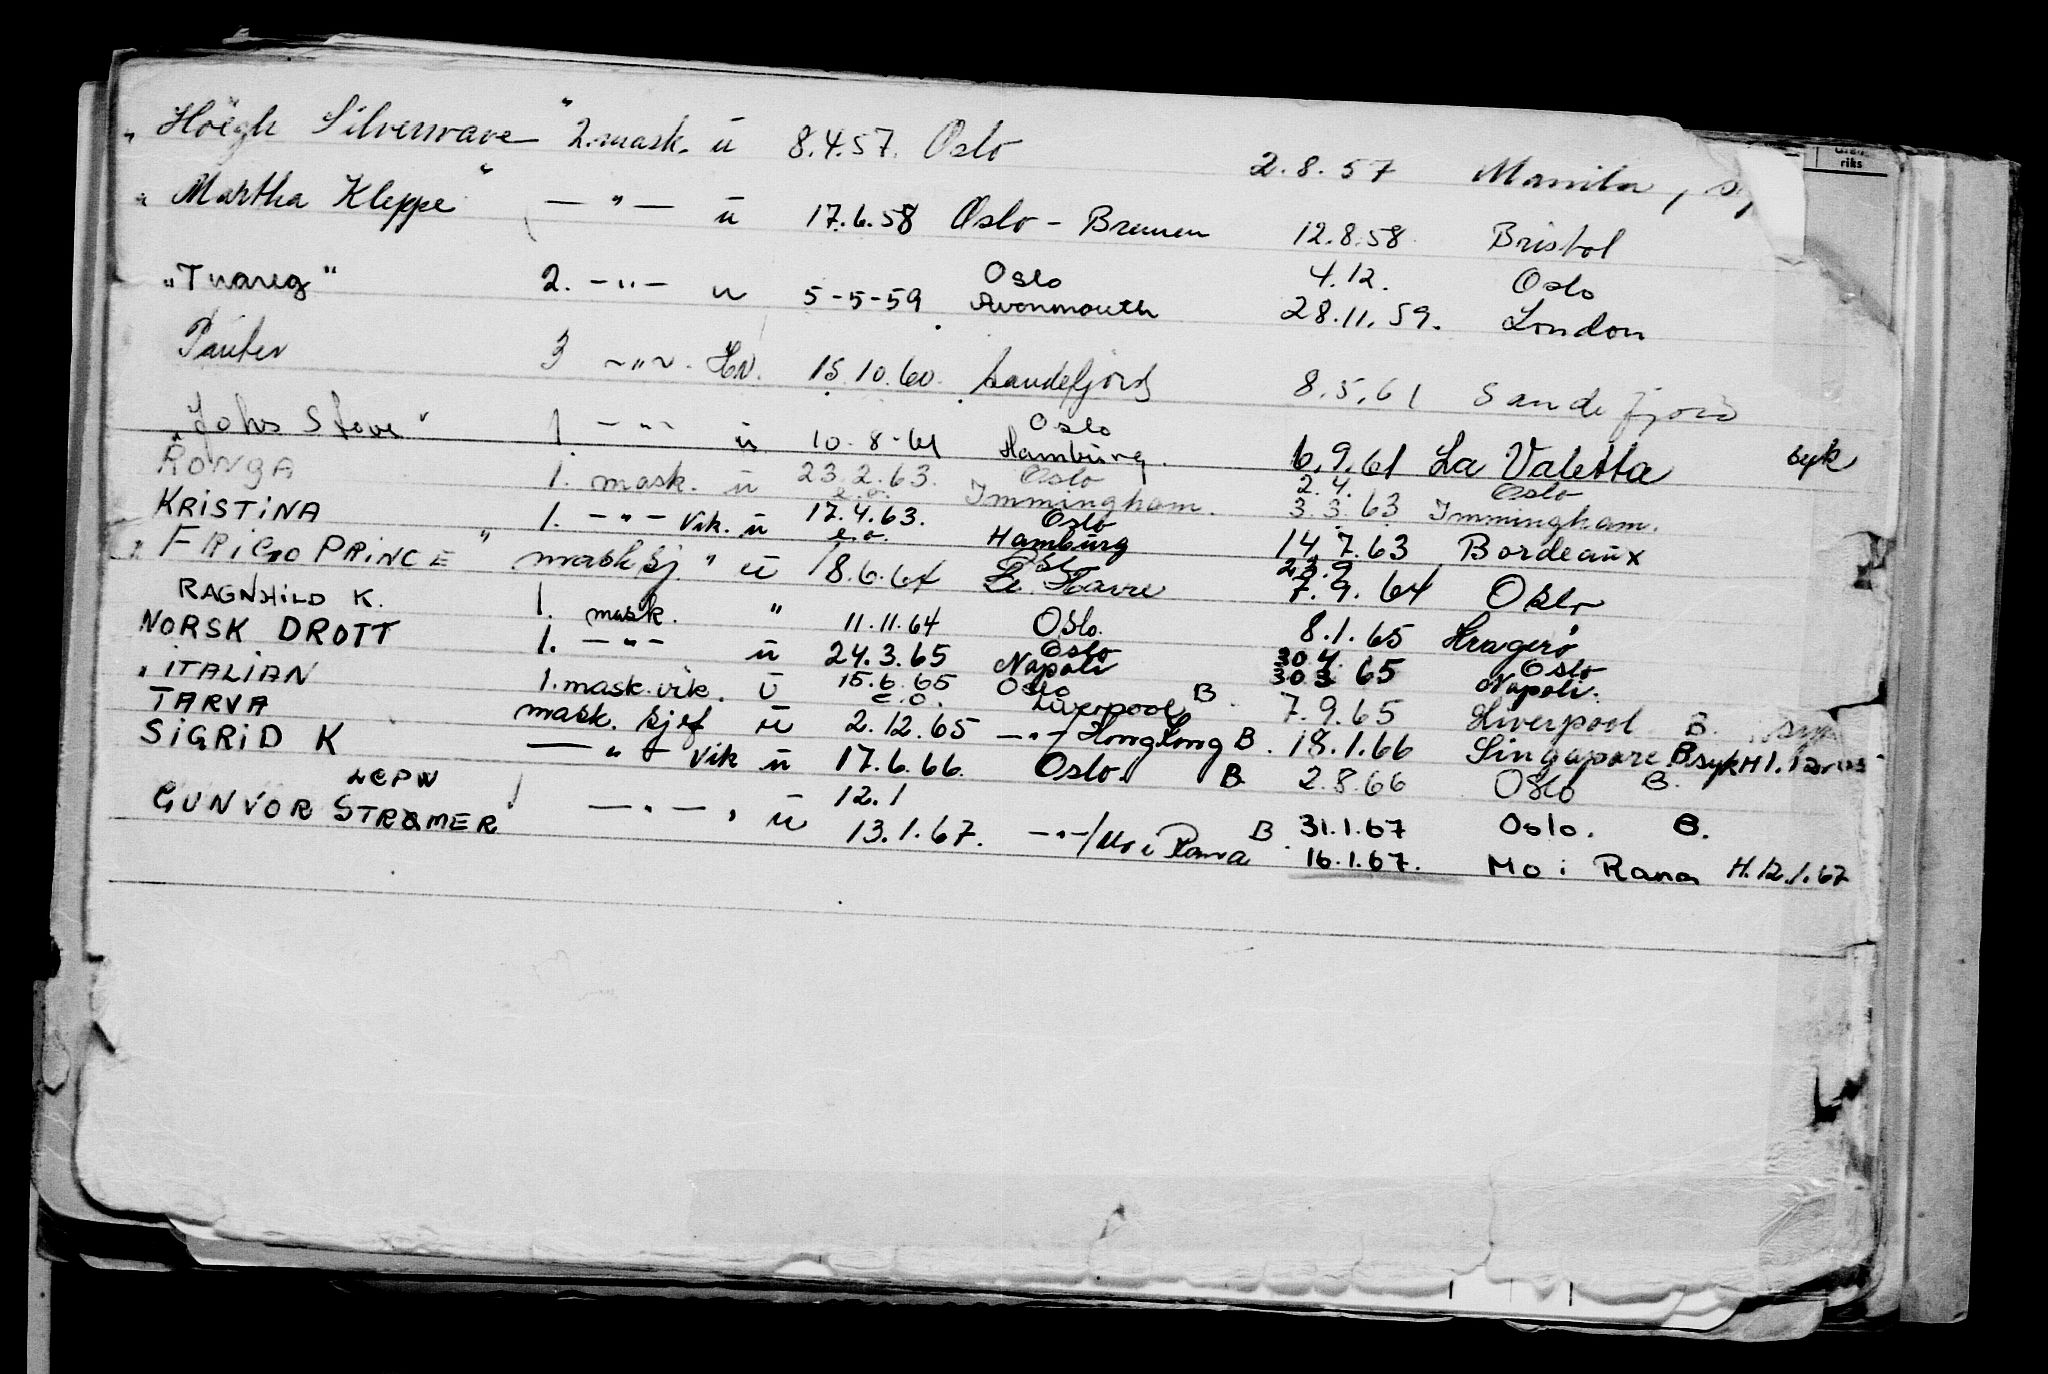 "Höegh Silverwave" 2. mask. ü 8.4.57. Oslo 2.8.57 Manila,
"Martha Kleppe" — " — ü 17.6.58 Oslo - Bremen 12.8.58 Bristol
Oslo 4.12. Oslo
"Tuareg" 2. — " — u 5-5-59 Avonmouth 28.11.59. London
3 — " — 15.10.60. Sandefjord 8.5.61 Sandefjord
Oslo
"Johs Stove" 1. — " — ü 10-8-61 Hamburg. 6.9.61 La Valetta syk
Oslo 2.4. Oslo
RONGA 1. mask. ü 23.2.63. Immingham. 3.3.63 Immingham.
e.o. Oslo
KRISTINA 1. — " — vik. ü 17.4.63. Hamburg 14.7.63 Bordeaux
e.o. Oslo
"FRIGO PRINCE" mask sj. " ü 18.6.64 Le Havre 7.9.64 Oslo
RAGNHILD K. 1. mask. " 11.11.64 Oslo. 8.1.65 Kragerø
Oslo 30.4. Oslo
NORSK DROTT 1. — " — ü 24.3.65 Napoli 30.3 65 Napoli.
"ITALIAN 1. mask. vik. ü 15.6.65 Oslo
E.O. Liverpool B. 7.9.65 Liverpool B. syk
TARVA mask. sjef ü 2.12.65 — " — / Hong Kong B. 18.1.66 Singapore B syk
SIGRID K — " — vik ü 17.6.66. Oslo. B 2.8.66 Oslo B.
LCPW 12.1 31.1.67 Oslo. B.
GUNVOR STRØMER — " — , ü 13.1.67. — " — / Mo i Rana B. 16.1.67. Mo i Rana H. 12.1.67
riks